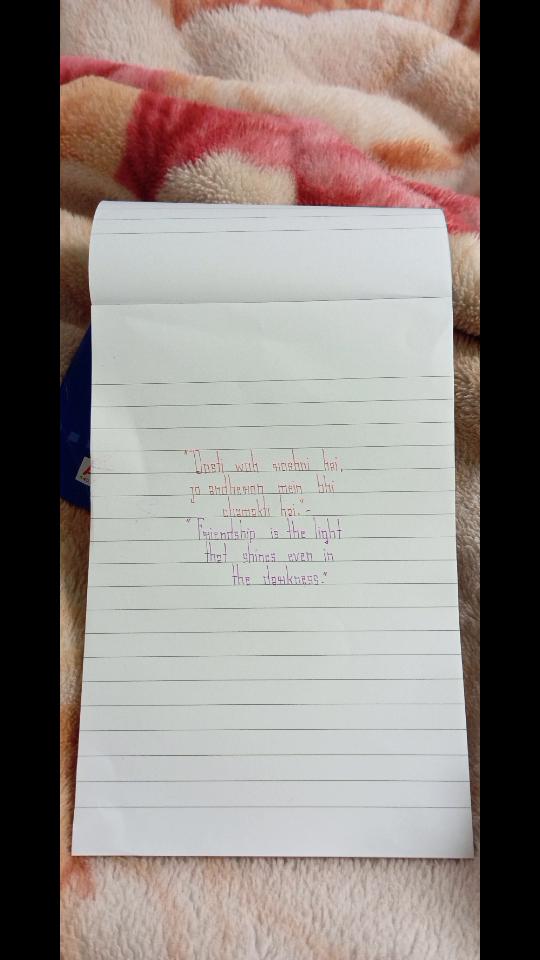 "Dosti woh roshni hai,
jo andheron mein bhi
chamakti hai."-
"Friendship is the light
that shines even in
the darkness."